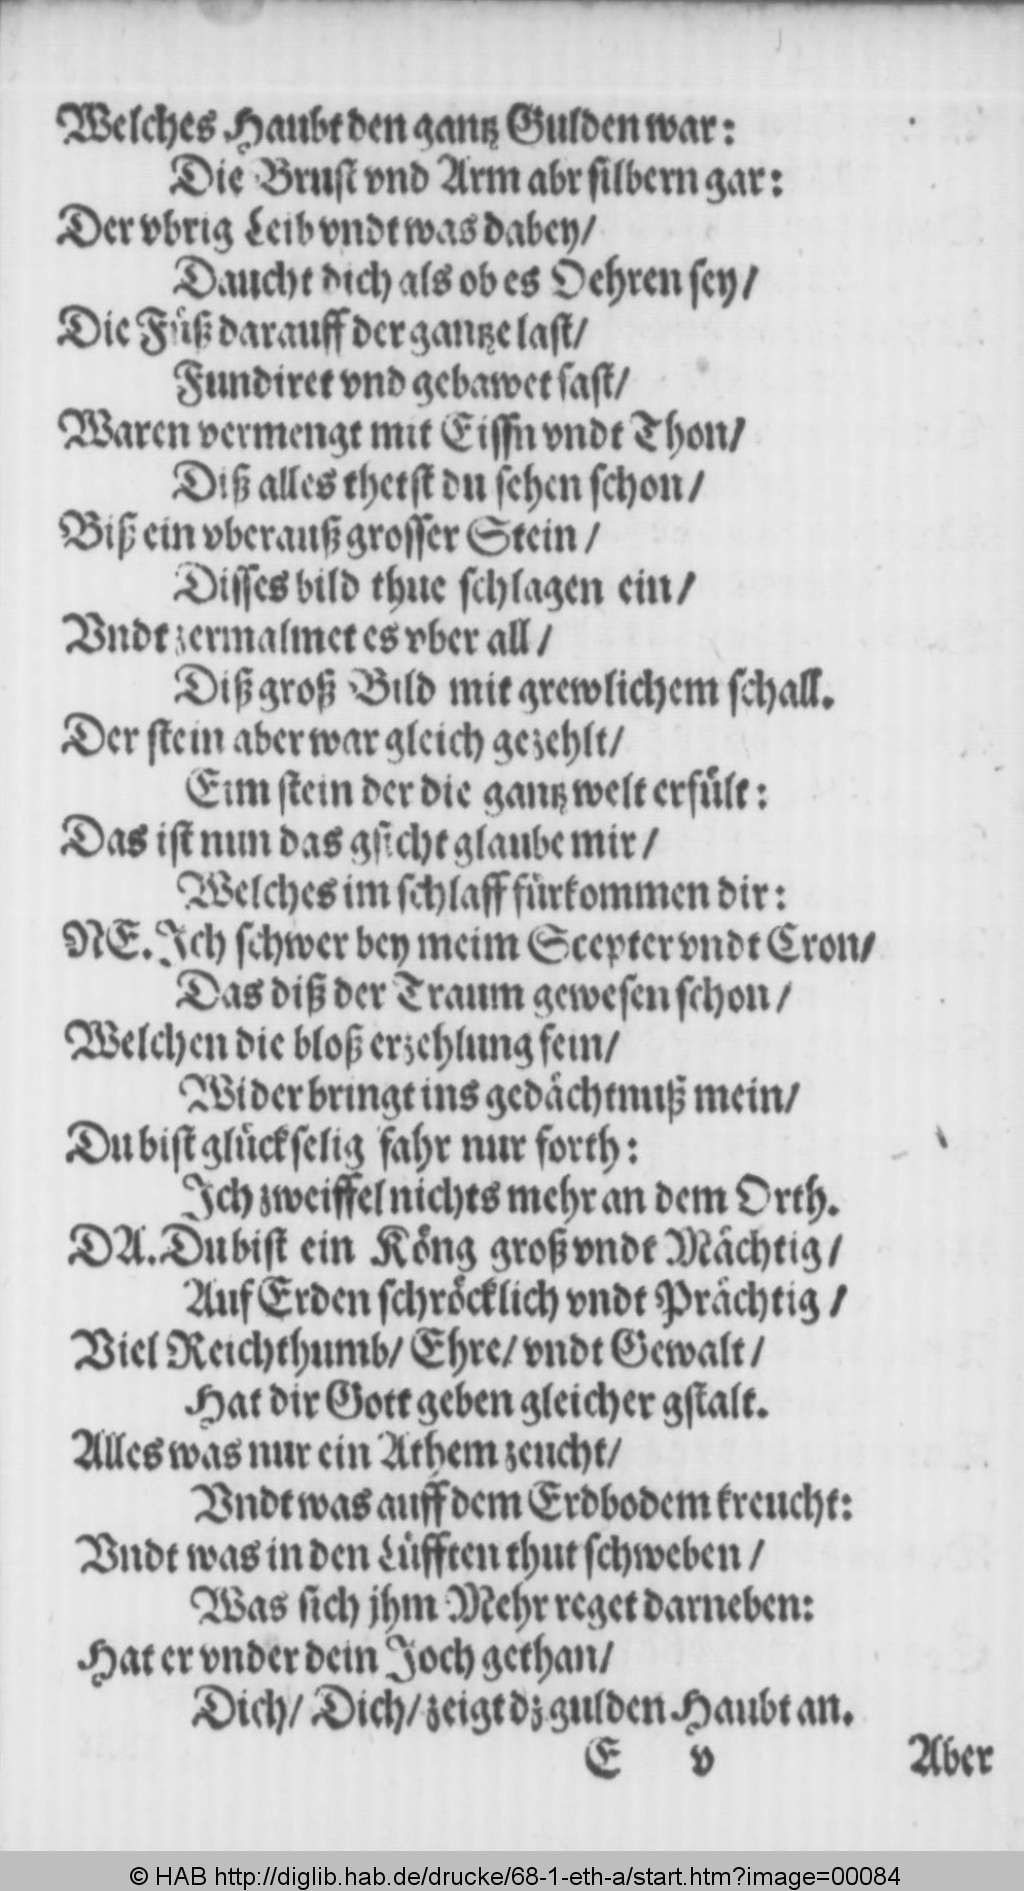 Welches Haubt den gantz Gulden war:
Die Brust vnd Arm abr silbern gar:
Der vbrig Leib vndt was dabey/
Daucht dich als ob es Oehren sey/
Die Füß darauff der gantze last/
Fundiret vnd gebawet fast/
Waren vermengt mit Eissn vndt Thon/
Diß alles thetst du sehen schon/
Biß ein vberauß grosser Stein/
Disses bild thue schlagen ein/
Vndt zermalmet es vber all/
Diß groß Bild mit grewlichem schall.
Der stein aber war gleich gezehlt/
Eim stein der die gantz welt erfült:
Das ist nun das gsicht glaube mir/
Welches im schlaff fürkommen dir:
NE. Ich schwer bey meim Scepter vndt Cron/
Das diß der Traum gewesen schon/
Welchen die bloß erzehlung fein/
Wider bringt ins gedächtnuß mein/
Du bist glückselig fahr nur forth:
Ich zweiffel nichts mehr an dem Orth.
DA. Du bist ein Köng groß vndt Mächtig/
Auf Erden schröcklich vndt Prächtig/
Viel Reichthumb/ Ehre/ vndt Gewalt/
Hat dir Gott geben gleicher gstalt.
Alles was nur ein Athem zeucht/
Vndt was auff dem Erdbodem kreucht:
Vndt was in den Lüfften thut schweben/
Was sich jhm Mehr reget darneben:
Hat er vnder dein Joch gethan/
Dich/ Dich/ zeigt dz gulden Haubt an.
E v Aber
© HAB http://diglib.hab.de/drucke/68-1-eth-a/start.htm?image=00084